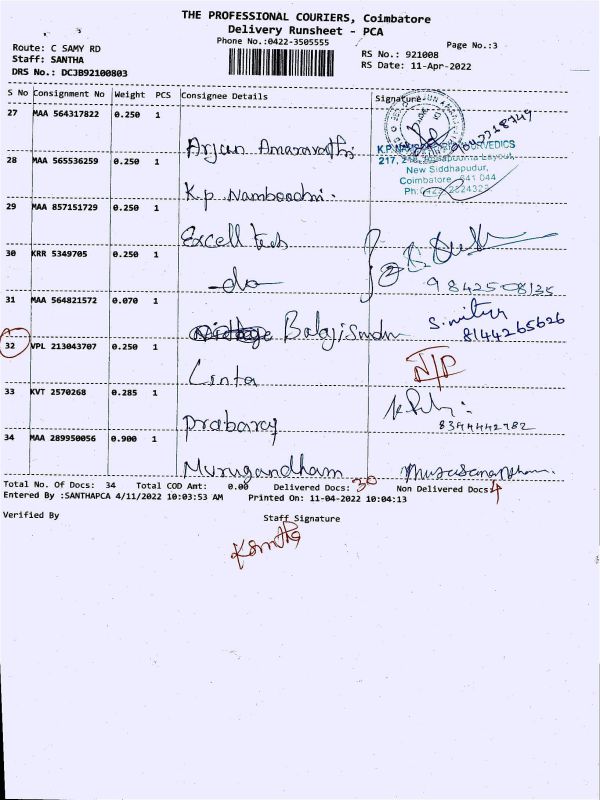 THE PROFESSIONAL COURIERS, Coimbatore
Delivery Runsheet - PCA
Phone No.:0422-3505555
Page No.:3
Route: C SAMY RD
Staff: SANTHA
DRS No.: DCJB92100803
RS No.: 921008
RS Date: 11-Apr-2022
S No Consignment No Weight PCS Consignee Details Signature
27 MAA 564317822 0.250 1
Arjun Amaravathi
28 MAA 565536259 0.250 1
K.P. Namboodri.
New Siddhapudur,
Coimbatore - 641 044
29 MAA 857151729 0.250 1
Excell tech
30 KRR 5349705 0.250 1
-do-
9842508135
31 MAA 564821572 0.070 1
Balaji
8144265626
32 VPL 213043707 0.250 1
Linta
N/D
33 KVT 2570268 0.285 1
Prabaraj
8344442782
34 MAA 289950056 0.900 1
Murugandham
Total No. Of Docs: 34 Total COD Amt: 0.00 Delivered Docs: 30 Non Delivered Docs: 4
Entered By :SANTHAPCA 4/11/2022 10:03:53 AM Printed On: 11-04-2022 10:04:13
Verified By Staff Signature